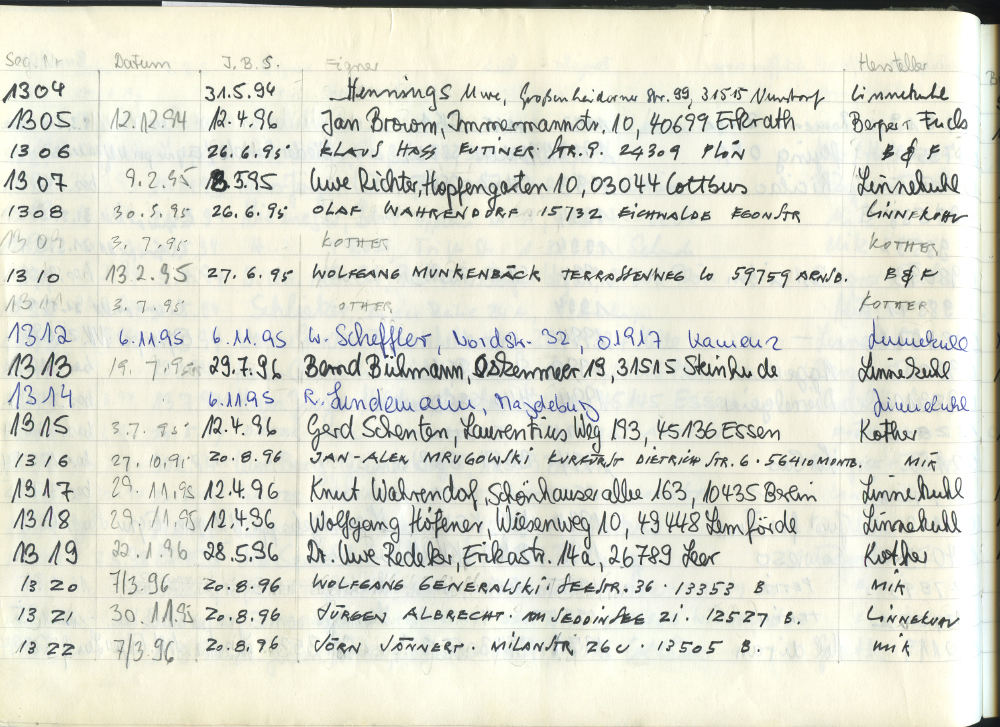 Seg. Nr Datum J.B.S. Eigner Hersteller
1304 31.5.94 Hennings Uwe, Großenheidorner Str. 99, 31515 Linnekuhl
1305 12.12.94 12.4.96 Jan Brown, Immermannstr. 10, 40699 Erkrath Fuchs
1306 26.6.95 KLAUS HASS EUTINER STR. 9. 24309 PLÖN B & F
1307 9.2.95 5.95 Uwe Richter, Hopfengarten 10, 03044 Cottbus Linnekuhl
1308 30.5.95 26.6.95 OLAF WAHRENDORF 15732 EICHWALDE EGONSTR LINNEKUHL
1309 3.7.95 KÖTHER KÖTHER
1310 13.2.95 27.6.95 WOLFGANG MUNKENBÄCK TERRASSENWEG 59759 ARNSB. B & F
1311 3.7.95 OTHER KÖTHER
1312 6.11.95 6.11.95 W. Scheffler, Nordstr. 32, 01917 Kamenz Linnekuhl
1313 19.7.95 29.7.96 Bernd Bühmann, 19, 31515 Steinhude Linnekuhl
1314 6.11.95 R. Lindemann, Magdeburg Linnekuhl
1315 3.7.95 12.4.96 Gerd Schenten, Laurentius Weg 193, 45136 Essen Köther
1316 27.10.95 20.8.96 JAN-ALEK MRUGOWSKI KURFÜRST DIETRICH STR. 6 · 56410 MONTB. MIK
1317 29.11.95 12.4.96 Knut Wahrendorf, Schönhauser allee 163, 10435 Berlin Linnekuhl
1318 29.11.95 12.4.96 Wolfgang Höfener, Wiesenweg 10, 49448 Lemförde Linnekuhl
1319 22.1.96 28.5.96 Dr. Uwe Redeker, Erikastr. 14a, 26789 Leer Köther
1320 7/3.96 20.8.96 WOLFGANG GENERALSKI · SEESTR. 36 · 13353 B MIK
1321 30.11.95 20.8.96 JÜRGEN ALBRECHT · AM SEDDINSEE 21 · 12527 B. LINNEKUHL
1322 7/3.96 20.8.96 JÖRN JÄNNERT · MILANSTR. 26 · 13505 B. MIK